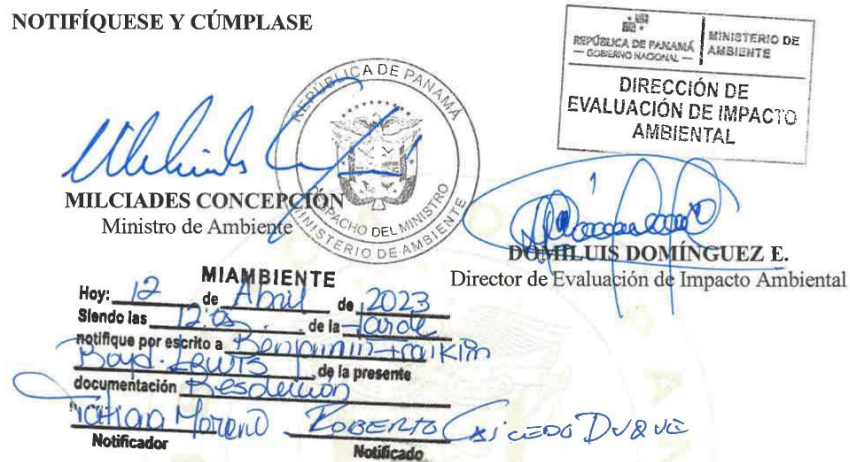 NOTIFÍQUESE Y CÚMPLASE
REPÚBLICA DE PANAMÁ
— GOBIERNO NACIONAL —
MINISTERIO DE
AMBIENTE
DIRECCIÓN DE
EVALUACIÓN DE IMPACTO
AMBIENTAL
REPÚBLICA DE PANAMÁ
DESPACHO DEL MINISTRO
MINISTERIO DE AMBIENTE
MILCIADES CONCEPCIÓN
Ministro de Ambiente
DOMILUIS DOMÍNGUEZ E.
Director de Evaluación de Impacto Ambiental
MIAMBIENTE
Hoy: 12 de Abril de 2023
Siendo las 12:05 de la tarde
notifique por escrito a Benjamin Franklin
Boyd Lewis de la presente
documentación Resolución
Tatiana Moreno ROBERTO CAICEDO DUQUE
Notificador Notificado